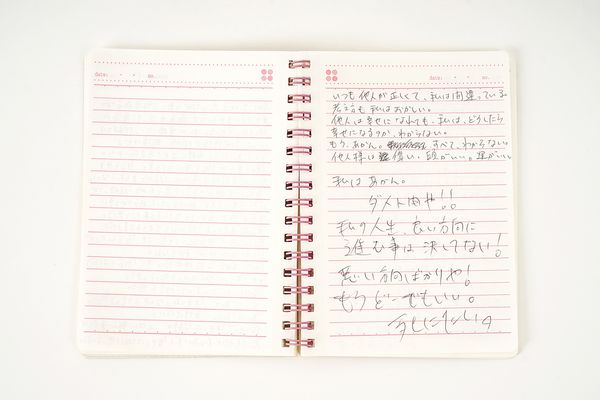 date: ・ ・ no.
date: ・ ・ no.
いつも他人が正しくて、私は間違っている。
考え方も私はおかしい。
他人は幸せになれても、私は、どうしたら
幸せになるのか、わからない。
もう、あかん。 すべて、わからない。
他人様は 偉い、頭がいい。運がいい。
私は あかん。
ダメ人間や!!
私の人生、良い方向に
進む事は 決してない!
悪い方向ばかりや!
もう どーでもいい。
死にたい。